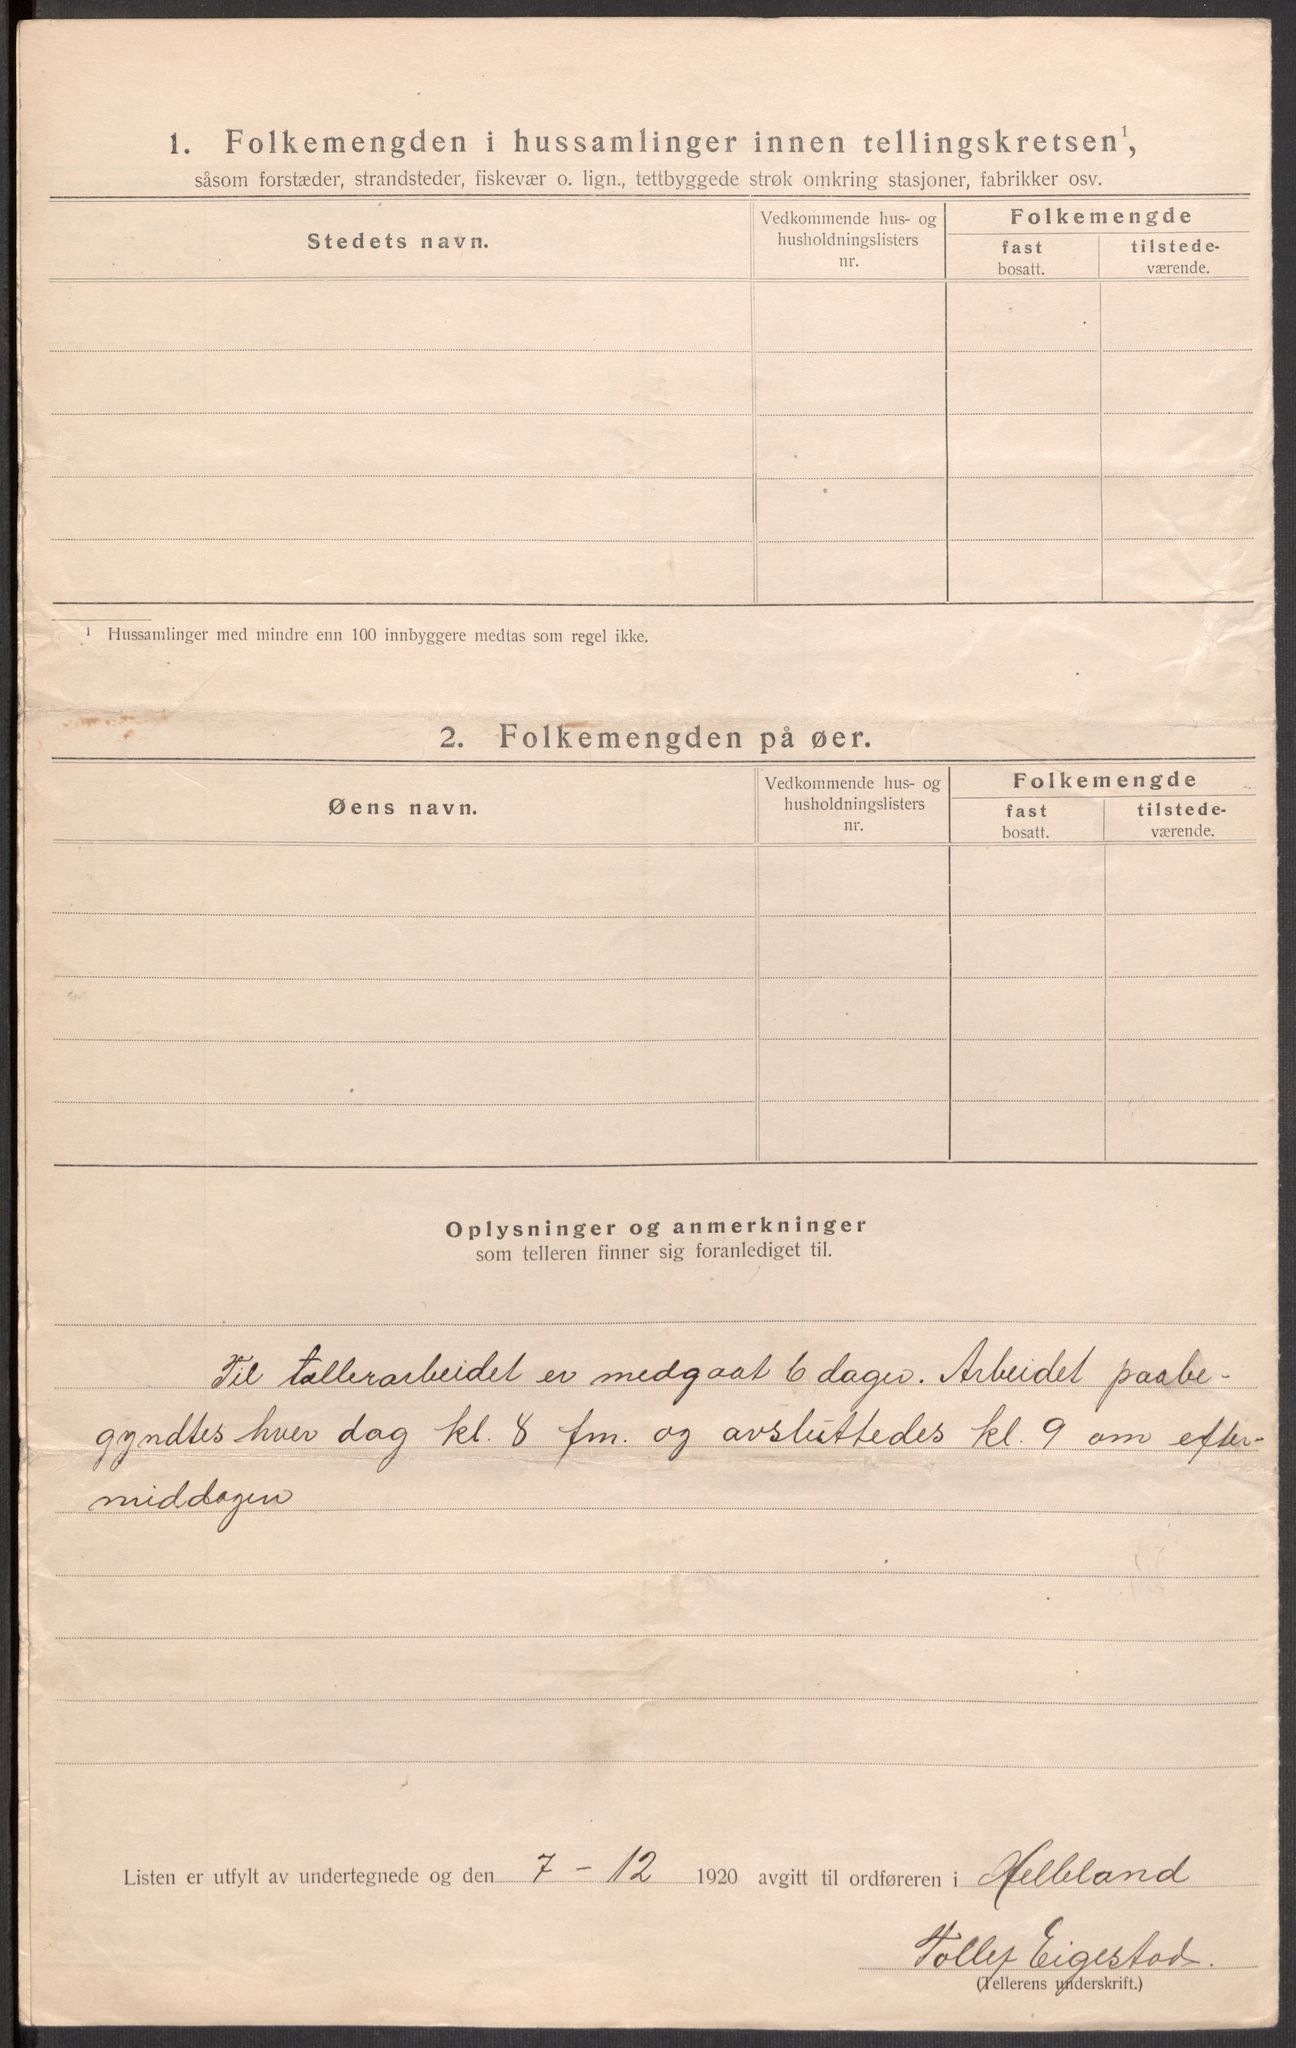 1. Folkemengden i hussamlinger innen tellingskretsen¹,
såsom forstæder, strandsteder, fiskevær o. lign., tettbyggede strøk omkring stasjoner, fabrikker osv.
Stedets navn.
Vedkommende hus- og
husholdningslisters
nr.
Folkemengde
fast
bosatt.
tilstede-
værende.
¹ Hussamlinger med mindre enn 100 innbyggere medtas som regel ikke.
2. Folkemengden på øer.
Øens navn.
Vedkommende hus- og
husholdningslisters
nr.
Folkemengde
fast
bosatt.
tilstede-
værende.
Oplysninger og anmerkninger
som telleren finner sig foranlediget til.
Til tællerarbeidet er medgaat 6 dager. Arbeidet paabe-
gyndtes hver dag kl. 8 fm. og avsluttedes kl. 9 om efter-
middagen
Listen er utfylt av undertegnede og den 7 - 12 1920 avgitt til ordføreren i Helleland
Tollef Eigestad.
(Tellerens underskrift.)